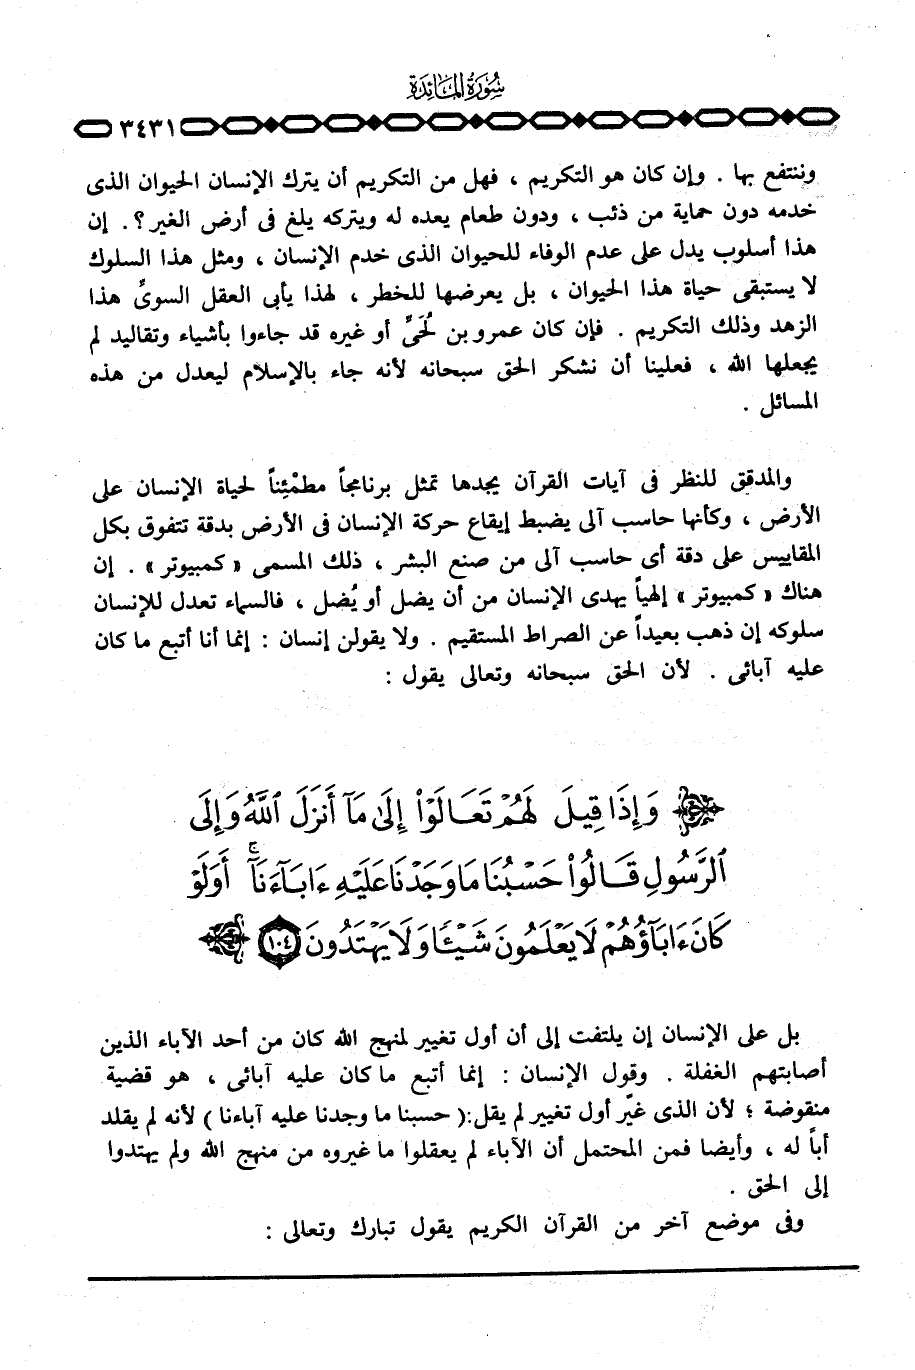 سُورَةُ المَائِدَة
٣٤٣١
وننتفع بها . وإن كان هو التكريم ، فهل من التكريم أن يترك الإنسان الحيوان الذى
خدمه دون حماية من ذئب ، ودون طعام يعده له ويتركه يلغ فى أرض الغير ؟. إن
هذا أسلوب يدل على عدم الوفاء للحيوان الذى خدم الإنسان ، ومثل هذا السلوك
لا يستبقى حياة هذا الحيوان ، بل يعرضها للخطر ، لهذا يأبى العقل السوىُّ هذا
الزهد وذلك التكريم . فإن كان عمرو بن لُحَىٍّ أو غيره قد جاءوا بأشياء وتقاليد لم
يجعلها الله ، فعلينا أن نشكر الحق سبحانه لأنه جاء بالإسلام ليعدل من هذه
المسائل .
والمدقق للنظر فى آيات القرآن يجدها تمثل برنامجاً مطمْئِناً لحياة الإنسان على
الأرض ، وكأنها حاسب آلى يضبط إيقاع حركة الإنسان فى الأرض بدقة تتفوق بكل
المقاييس على دقة أى حاسب آلى من صنع البشر ، ذلك المسمى « كمبيوتر » . إن
هناك « كمبيوتر » إلهياً يهدى الإنسان من أن يضل أو يُضل ، فالسماء تعدل للإنسان
سلوكه إن ذهب بعيداً عن الصراط المستقيم . ولا يقولن إنسان : إنما أنا أتبع ما كان
عليه آبائى . لأن الحق سبحانه وتعالى يقول :
وَإِذَا قِيلَ لَهُمْ تَعَالَوْا۟ إِلَىٰ مَآ أَنزَلَ ٱللَّهُ وَإِلَى
ٱلرَّسُولِ قَالُوا۟ حَسْبُنَا مَا وَجَدْنَا عَلَيْهِ ءَابَآءَنَآ ۚ أَوَلَوْ
كَانَ ءَابَآؤُهُمْ لَا يَعْلَمُونَ شَيْـًٔا وَلَا يَهْتَدُونَ ١٠٤
بل على الإنسان إن يلتفت إلى أن أول تغيير لمنهج الله كان من أحد الآباء الذين
أصابتهم الغفلة . وقول الإنسان : إنما أتبع ما كان عليه آبائى ، هو قضية
منقوضة ؛ لأن الذى غيّر أول تغيير لم يقل :( حسبنا ما وجدنا عليه آباءنا ) لأنه لم يقلد
أباً له ، وأيضا فمن المحتمل أن الآباء لم يعقلوا ما غيروه من منهج الله ولم يهتدوا
إلى الحق .
وفى موضع آخر من القرآن الكريم يقول تبارك وتعالى :